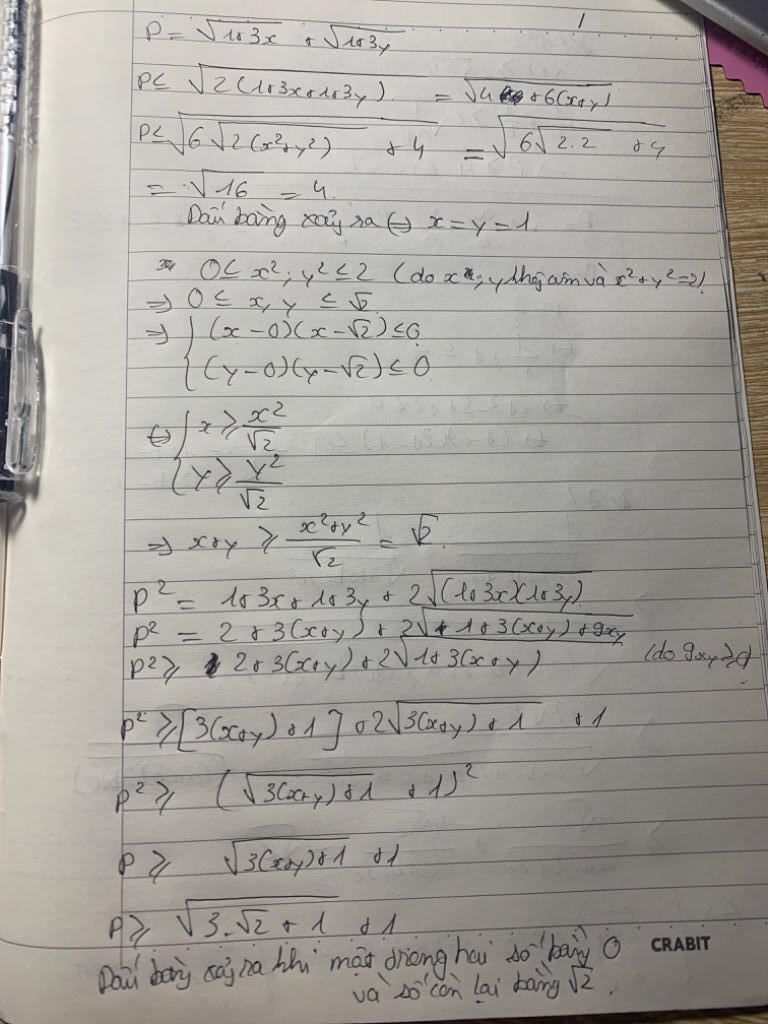 1
P = √(1+3x) + √(1+3y)
P ≤ √(2(1+3x+1+3y)) = √(4+6(x+y))
P ≤ √(6√(2(x²+y²)) + 4) = √(6√(2.2) + 4)
= √16 = 4.
Dấu bằng xảy ra ⇔ x = y = 1.
* 0 ≤ x²; y² ≤ 2 (do x; y không âm và x²+y²=2)
⇒ 0 ≤ x, y ≤ √2
⇒ { (x-0)(x-√2) ≤ 0
(y-0)(y-√2) ≤ 0
⇔ { x ≥ x²/√2
{ y ≥ y²/√2
⇒ x+y ≥ (x²+y²)/√2 = √2.
P² = 1+3x+1+3y + 2√((1+3x)(1+3y))
P² = 2+3(x+y) + 2√(1+3(x+y)+9xy)
P² ≥ 2+3(x+y)+2√(1+3(x+y)) (do 9xy ≥ 0)
P² ≥ [3(x+y)+1] + 2√(3(x+y)+1) + 1
P² ≥ (√(3(x+y)+1) + 1)²
P ≥ √(3(x+y)+1) + 1
P ≥ √(3.√2 + 1) + 1
Dấu bằng xảy ra khi một trong hai số bằng 0
và số còn lại bằng √2.
CRABIT